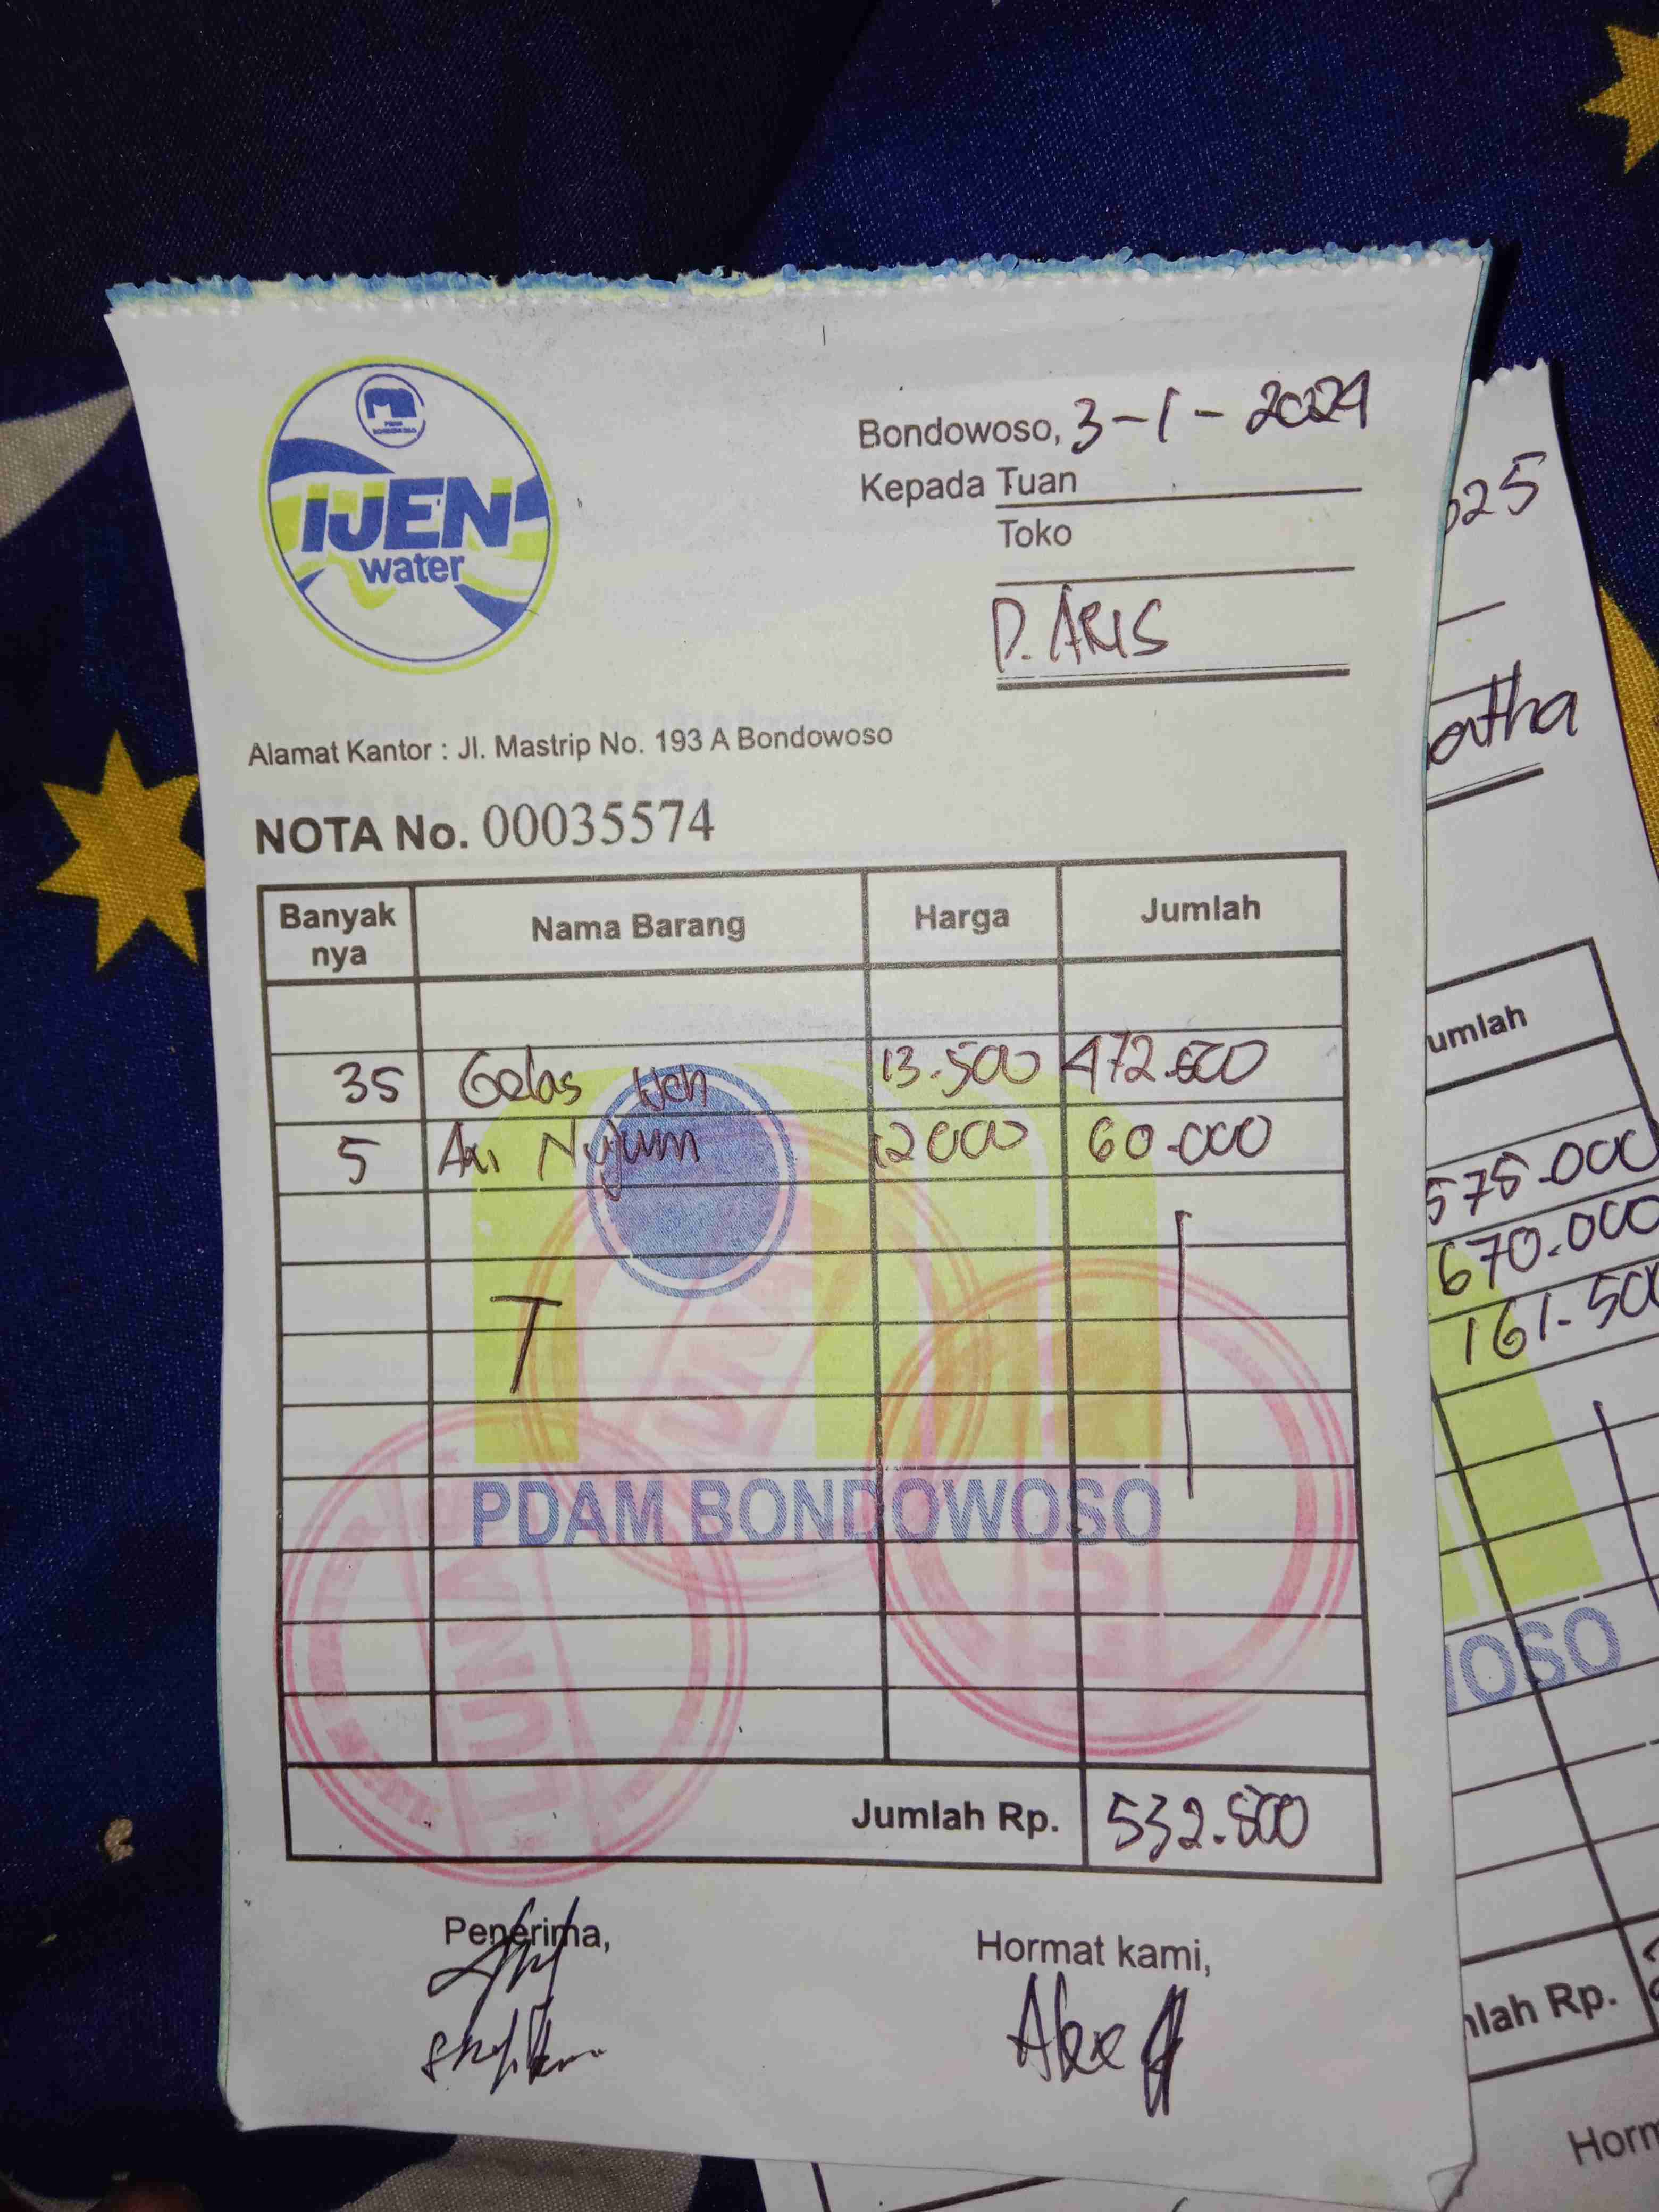 PDAM
BONDOWOSO
IJEN
water
Bondowoso, 3-1-2024
Kepada Tuan
Toko
D. ARIS
Alamat Kantor : Jl. Mastrip No. 193 A Bondowoso
NOTA No. 00035574
Banyak nya Nama Barang Harga Jumlah
35 Gelas Ijen 13.500 472.500
5 Axi Nujum 12000 60.000
PDAM BONDOWOSO
LUNAS
LUNAS
LUNAS
Jumlah Rp. 532.500
Penerima,
Hormat kami,
Alex
025
atha
umlah
575.000
670.000
161.500
WOSO
mlah Rp.
Horm